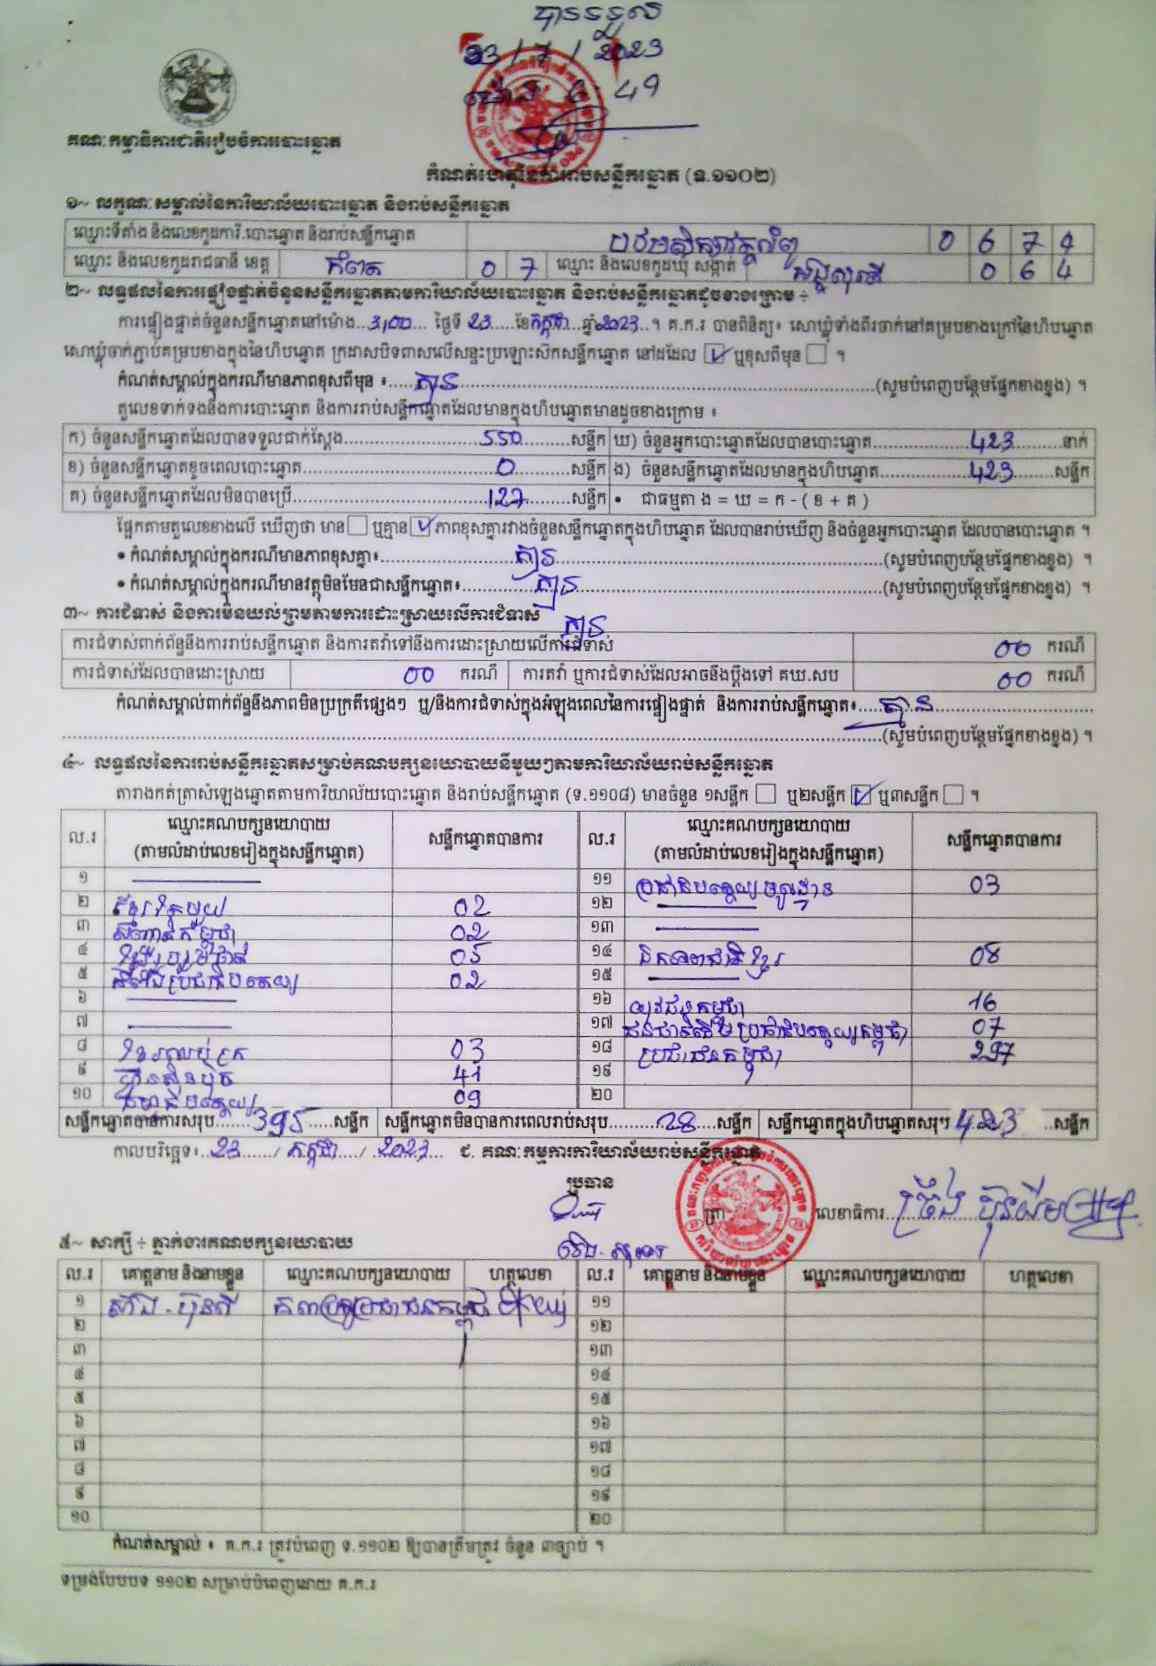 បានទទួល
23 / 7 / 2023
ម៉ោង 6:49
គណៈកម្មាធិការជាតិរៀបចំការបោះឆ្នោត
កំណត់ហេតុនៃការរាប់សន្លឹកឆ្នោត (ទ.១១០២)
១~ លក្ខណៈសម្គាល់នៃការិយាល័យបោះឆ្នោត និងរាប់សន្លឹកឆ្នោត
ឈ្មោះទីតាំង និងលេខកូដការិ.បោះឆ្នោត និងរាប់សន្លឹកឆ្នោត 0 6 7 9
ឈ្មោះ និងលេខកូដរាជធានី ខេត្ត កំពត 0 7 ឈ្មោះ និងលេខកូដឃុំ សង្កាត់ 0 6 4
២~ លទ្ធផលនៃការផ្ទៀងផ្ទាត់ចំនួនសន្លឹកឆ្នោតតាមការិយាល័យបោះឆ្នោត និងរាប់សន្លឹកឆ្នោតដូចខាងក្រោម ÷
ការផ្ទៀងផ្ទាត់ចំនួនសន្លឹកឆ្នោតនៅម៉ោង...3,00... ថ្ងៃទី 23.....ខែកក្កដា...ឆ្នាំ2023...។ គ.ក.រ បានពិនិត្យ៖ សោឃ្លុំទាំងពីរចាក់នៅគម្របខាងក្រៅនៃហិបឆ្នោត
សោឃ្លុំចាក់ភ្ជាប់គម្របខាងក្នុងនៃហិបឆ្នោត ក្រដាសបិទពាសលើសន្ទះប្រឡោះស៊កសន្លឹកឆ្នោត នៅដដែល ☑ ឬខុសពីមុន ☐ ។
កំណត់សម្គាល់ក្នុងករណីមានភាពខុសពីមុន ៖.....គ្មាន.....(សូមបំពេញបន្ថែមផ្នែកខាងខ្នង) ។
តួលេខទាក់ទងនឹងការបោះឆ្នោត និងការរាប់សន្លឹកឆ្នោតដែលមានក្នុងហិបឆ្នោតមានដូចខាងក្រោម ៖
ក) ចំនួនសន្លឹកឆ្នោតដែលបានទទួលជាក់ស្តែង.....550.....សន្លឹក ឃ) ចំនួនអ្នកបោះឆ្នោតដែលបានបោះឆ្នោត.....423.....នាក់
ខ) ចំនួនសន្លឹកឆ្នោតខូចពេលបោះឆ្នោត.....0.....សន្លឹក ង) ចំនួនសន្លឹកឆ្នោតដែលមានក្នុងហិបឆ្នោត.....423.....សន្លឹក
គ) ចំនួនសន្លឹកឆ្នោតដែលមិនបានប្រើ.....127.....សន្លឹក • ជាធម្មតា ង = ឃ = ក - ( ខ + គ )
ផ្អែកតាមតួលេខខាងលើ ឃើញថា មាន ☐ ឬគ្មាន ☑ ភាពខុសគ្នារវាងចំនួនសន្លឹកឆ្នោតក្នុងហិបឆ្នោត ដែលបានរាប់ឃើញ និងចំនួនអ្នកបោះឆ្នោត ដែលបានបោះឆ្នោត ។
• កំណត់សម្គាល់ក្នុងករណីមានភាពខុសគ្នា៖.....គ្មាន.....(សូមបំពេញបន្ថែមផ្នែកខាងខ្នង) ។
• កំណត់សម្គាល់ក្នុងករណីមានវត្ថុមិនមែនជាសន្លឹកឆ្នោត៖.....គ្មាន.....(សូមបំពេញបន្ថែមផ្នែកខាងខ្នង) ។
៣~ ការជំទាស់ និងការមិនយល់ព្រមតាមការដោះស្រាយលើការជំទាស់ គ្មាន
ការជំទាស់ពាក់ព័ន្ធនឹងការរាប់សន្លឹកឆ្នោត និងការតវ៉ាទៅនឹងការដោះស្រាយលើការជំទាស់ 00 ករណី
ការជំទាស់ដែលបានដោះស្រាយ 00 ករណី ការតវ៉ា ឬការជំទាស់ដែលអាចនឹងប្តឹងទៅ គឃ.សប 00 ករណី
កំណត់សម្គាល់ពាក់ព័ន្ធនឹងភាពមិនប្រក្រតីផ្សេងៗ ឬ/និងការជំទាស់ក្នុងអំឡុងពេលនៃការផ្ទៀងផ្ទាត់ និងការរាប់សន្លឹកឆ្នោត៖.....គ្មាន.....
.....(សូមបំពេញបន្ថែមផ្នែកខាងខ្នង) ។
៤~ លទ្ធផលនៃការរាប់សន្លឹកឆ្នោតសម្រាប់គណបក្សនយោបាយនីមួយៗតាមការិយាល័យរាប់សន្លឹកឆ្នោត
តារាងកត់ត្រាសំឡេងឆ្នោតតាមការិយាល័យបោះឆ្នោត និងរាប់សន្លឹកឆ្នោត (ទ.១១០៨) មានចំនួន ១សន្លឹក ☐ ឬ២សន្លឹក ☑ ឬ៣សន្លឹក ☐ ។
ល.រ ឈ្មោះគណបក្សនយោបាយ (តាមលំដាប់លេខរៀងក្នុងសន្លឹកឆ្នោត) សន្លឹកឆ្នោតបានការ ល.រ ឈ្មោះគណបក្សនយោបាយ (តាមលំដាប់លេខរៀងក្នុងសន្លឹកឆ្នោត) សន្លឹកឆ្នោតបានការ
១ ១១ ប្រជាធិបតេយ្យមូលដ្ឋាន 03
២ ខ្មែររួមគ្នាមួយ 02 ១២
៣ 02 ១៣
៤ 05 ១៤ ឯកភាពជាតិខ្មែរ 08
៥ 02 ១៥
៦ ១៦ យុវជនកម្ពុជា 16
៧ ១៧ ជនជាតិដើមប្រជាធិបតេយ្យកម្ពុជា 07
៨ ខ្មែរឈប់ក្រ 03 ១៨ ប្រជាជនកម្ពុជា 297
៩ ហ៊្វុនស៊ិនប៉ិច 41 ១៩
១០ 09 ២០
សន្លឹកឆ្នោតបានការសរុប.....395.....សន្លឹក សន្លឹកឆ្នោតមិនបានការពេលរាប់សរុប.....28.....សន្លឹក សន្លឹកឆ្នោតក្នុងហិបឆ្នោតសរុប 423 ..សន្លឹក
កាលបរិច្ឆេទ៖..23...../ កក្កដា.../ 2023... ជ. គណៈកម្មការការិយាល័យរាប់សន្លឹកឆ្នោត
ប្រធាន
ត្រា លេខាធិការ
៥~ សាក្សី ÷ ភ្នាក់ងារគណបក្សនយោបាយ
ល.រ គោត្តនាម និងនាមខ្លួន ឈ្មោះគណបក្សនយោបាយ ហត្ថលេខា ល.រ គោត្តនាម និងនាមខ្លួន ឈ្មោះគណបក្សនយោបាយ ហត្ថលេខា
១ គណបក្សប្រជាជនកម្ពុជា ១១
២ ១២
៣ ១៣
៤ ១៤
៥ ១៥
៦ ១៦
៧ ១៧
៨ ១៨
៩ ១៩
១០ ២០
កំណត់សម្គាល់ ៖ គ.ក.រ ត្រូវបំពេញ ទ.១១០២ ឱ្យបានត្រឹមត្រូវ ចំនួន ៣ច្បាប់ ។
ទម្រង់បែបបទ ១១០២ សម្រាប់បំពេញដោយ គ.ក.រ